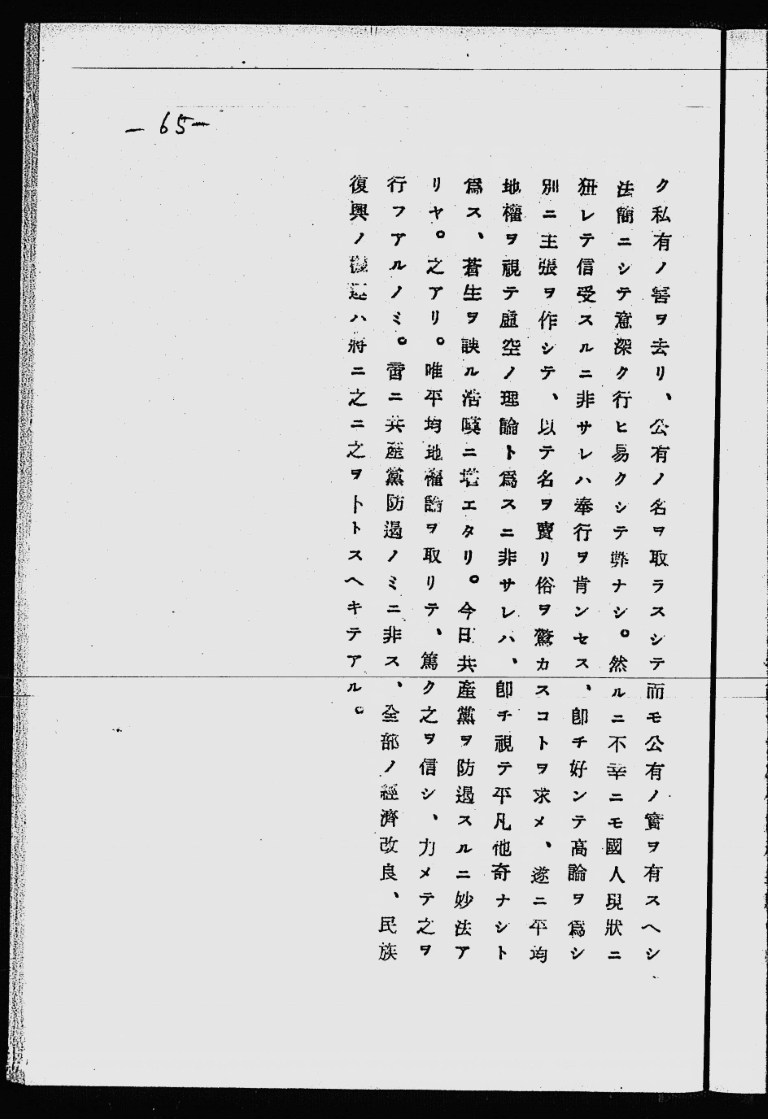 -65-
ク私有ノ害ヲ去リ、公有ノ名ヲ取ラスシテ而モ公有ノ實ヲ有スヘシ、
法簡ニシテ意深ク行ヒ易クシテ弊ナシ。然ルニ不幸ニモ國人現狀ニ
狃レテ信受スルニ非サレハ奉行ヲ肯ンセス、卽チ好ンテ高論ヲ爲シ
別ニ主張ヲ作シテ、以テ名ヲ賣リ俗ヲ驚カスコトヲ求メ、遂ニ平均
地權ヲ視テ虛空ノ理論ト爲スニ非サレハ、卽チ視テ平凡他奇ナシト
爲ス、蒼生ヲ誤ル浩嘆ニ堪エタリ。今日共產黨ヲ防遏スルニ妙法ア
リヤ。之アリ。唯平均地權論ヲ取リテ、篤ク之ヲ信シ、力メテ之ヲ
行フアルノミ。啻ニ共產黨防遏ノミニ非ス、全部ノ經濟改良、民族
復興ノ機運ハ將ニ之ニ之ヲトトスヘキテアル。